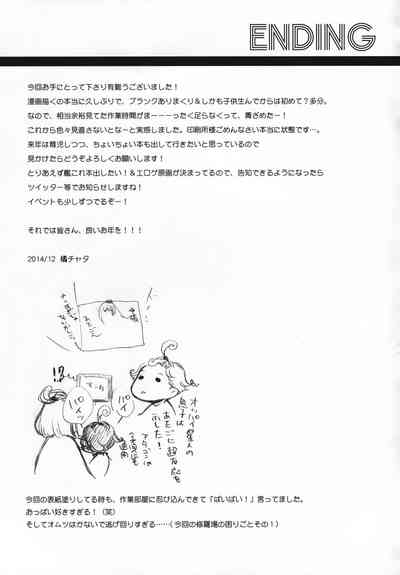 ENDING
今回お手にとって下さり有難うございました！
漫画描くの本当に久しぶりで、ブランクありまくり＆しかも子供生んでからは初めて？多分。
なので、相当余裕見てた作業時間がまーーーったく足らなくって、青ざめたー！
これから色々見直さないとなーと実感しました。印刷所様ごめんなさい本当に状態です…。
来年は育児しつつ、ちょいちょい本も出して行きたいと思っているので
見かけたらどうぞよろしくお願いします！
とりあえず艦これ本出したい！＆エロゲ原画が決まってるので、告知できるようになったら
ツイッター等でお知らせしますね！
イベントも少しずつでるぞー！
それでは皆さん、良いお年を！！！
2014/12 橘チャタ
!?
パイッ
パイ
オッパイ星人の
息子は
あたごに超反応
示した！
今回の表紙塗りしてる時も、作業部屋に忍び込んできて「ぱいぱい！」言ってました。
おっぱい好きすぎる！（笑）
そしてオムツはかないで逃げ回りすぎる……（今回の修羅場の困りごとその１）